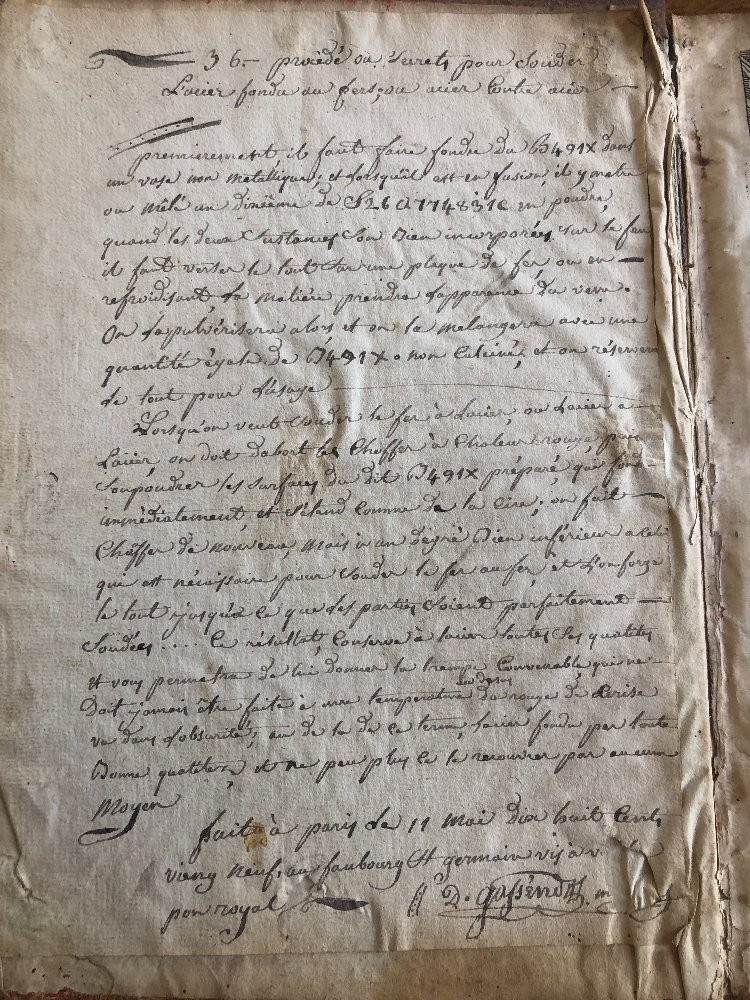 36.- procédé ou Secrets pour Souder
L'acier fondu au fers, ou acier Contre acier —
premierement, il faut faire fondre du B491X dans
un vase non métallique; et Lorsqu'il est en fusion, il y metre
ou mêlé un dixiéme de S26a774831e en poudre,
quand les deux Sustances Son Bien incorporées, Sur le feu
il faut verser le tout Sur une plaque de fer, ou en —
refroidisant, La matière prendra L'apparence du verre.
On La pulvérisera alors et on la mélangera avec une
quantité égale de B491X. non Calciné; et on réservera
le tout pour L'usage
Lorsqu'on veut Souder le fer à L'acier, ou L'acier a
L'acier, on doit D'abort les Chaffer à Chaleur rouge, puis
Soupoudrer les Surfaces du dit B491X préparé, qui fond
immédiatement, et S'étend Comme de la Cire; on fait —
Chaffer de nouveau, mais à un dégré Bien inférieur a Celui
qui est nécéssaire pour Souder le fer au fer, et L'on forge
le tout jusqu'a Ce que Les parties Soient parfaitement —
Soudées .... Ce résultat, Conserve à L'acier toutes Ses qualités
et vous permetra de lui donner la trempe Convenable, qui ne
Doit jamais être faite à une température au désus du rouge de Cerise
vu dans L'obsurité; au de la de Ce terme, L'acier fondu per toute
Bonne qualité, et ne peu plus Ce le recouvrer par aucun
Moyen
fait à paris Le 11 Mai dix huit Cents
vieng neuf, au faubourg St germain vis à v
pon royal